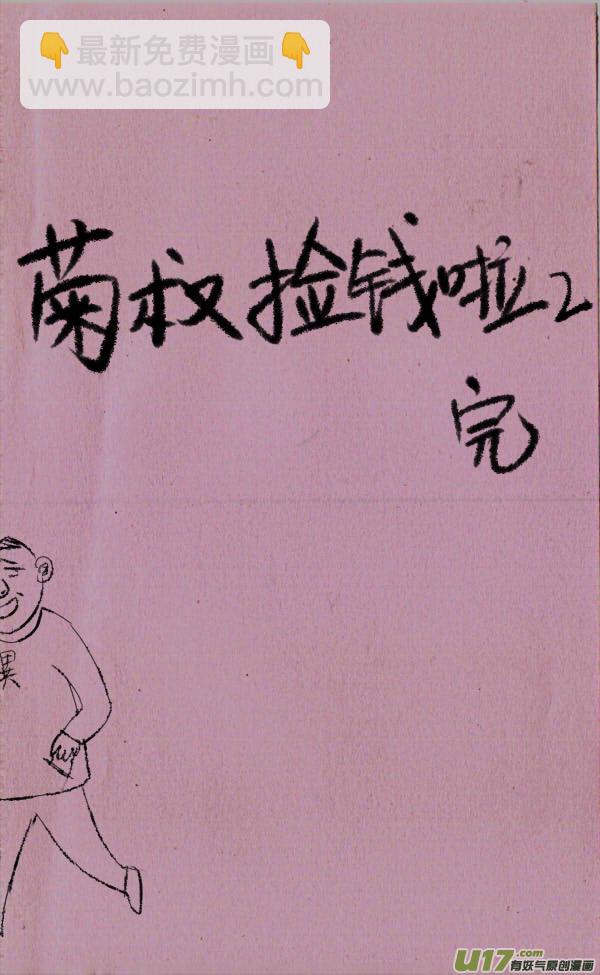 👇最新免费漫画👇
www.baozimh.com
菊叔捡钱啦2
完
異
U17.com
有妖气原创漫画